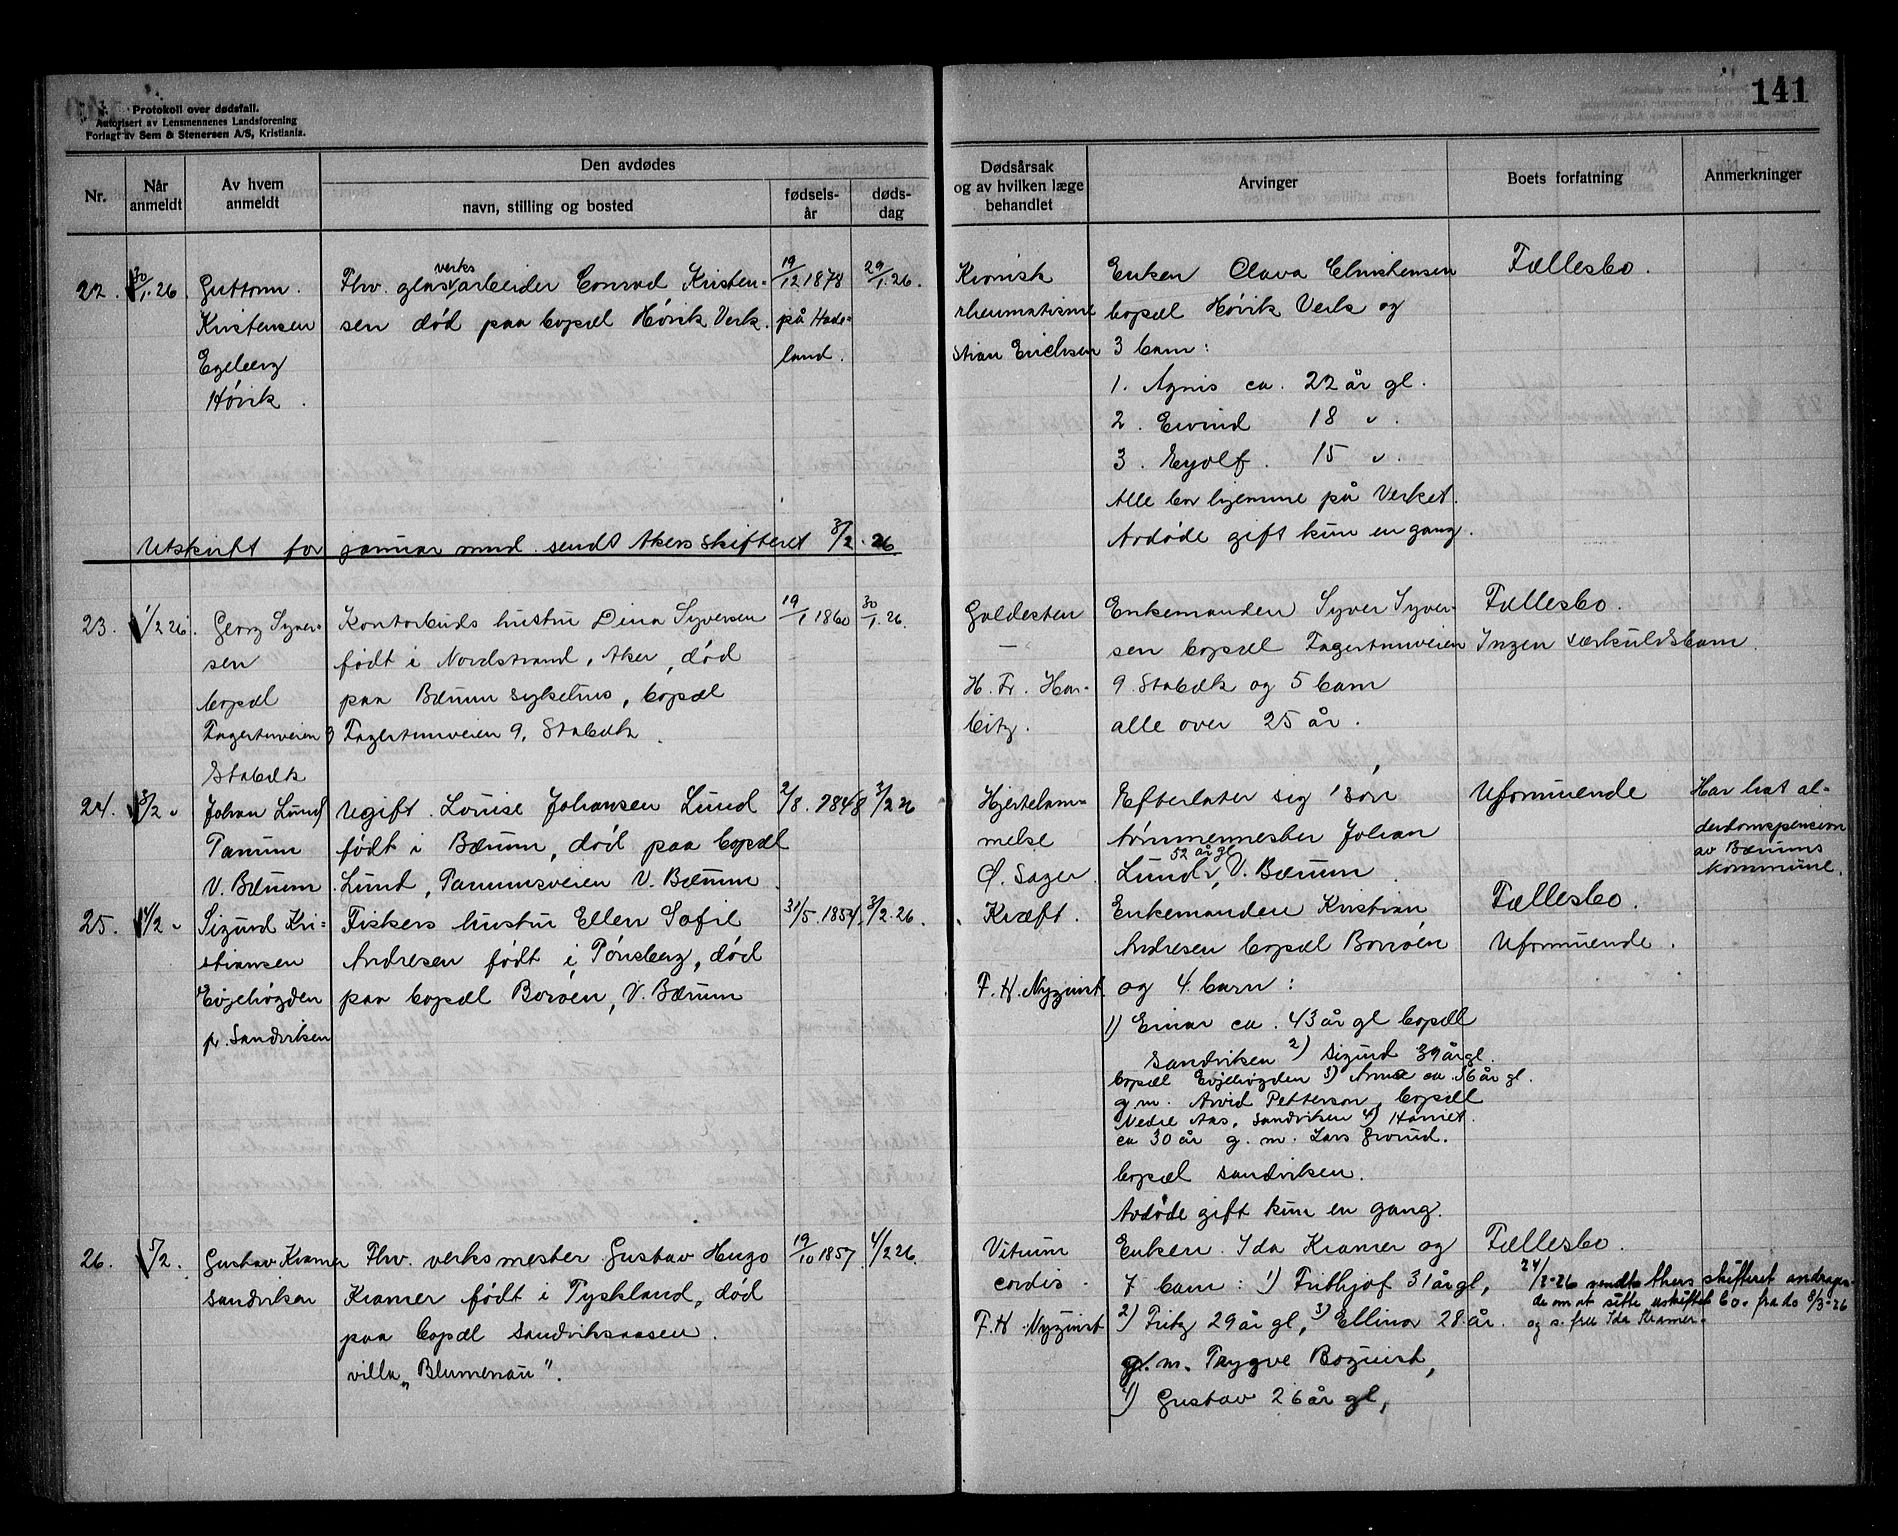 141
Protokoll over dødsfall.
Autorisert av Lensmennenes Landsforening
Forlagt av Sem & Stenersen A/S, Kristiania.
Nr.
Når anmeldt
Av hvem anmeldt
Den avdødes
navn, stilling og bosted
fødsels-år
døds-dag
Dødsårsak og av hvilken læge behandlet
Arvinger
Boets forfatning
Anmerkninger
22.
30/1.26.
Guttorm
Kristensen
Egeberg
Høvik.
Fhv. glasverksarbeider Conrad Kristen-
sen død paa bopæl Høvik Verk.
19/12 1878
på Hade-
land.
29/1.26.
Kronisk
rheumatisme
Stian Erichsen
Enken Clara Christensen
bopæl Høvik Verk og
3 barn:
1. Agnis ca. 22 år gl.
2. Eivind 18 "
3. Eyolf. 15 "
Alle bor hjemme på Verket.
Avdøde gift kun en gang.
Fællesbo.
Utskrift for januar mnd. sendt Akers skifteret 3/2.26.
23.
1/2 26.
Georg Syver-
sen
bopæl
Fagertunveien 9
Stabæk
Kontorbuds hustru Dina Syversen
født i Nordstrand, Aker, død
paa Bærum sykehus, bopæl
Fagertunveien 9, Stabæk.
19/1 1860
30/1.26.
Galdesten
H. Fr. Har-
bitz.
Enkemanden Syver Syver-
sen bopæl Fagertunveien
9. Stabæk og 5 barn
alle over 25 år.
Fællesbo.
Ingen særkuldsbarn.
24.
3/2 "
Johan Lund
Tanum
V. Bærum
Ugift Louise Johansen Lund
født i Bærum, død paa bopæl
Lund, Tanumsveien V. Bærum.
2/8. 1848
3/2 26
Hjertelam-
melse
O. Sager.
Efterlater sig 1 søn
tømmermester Johan
Lund, 52 år gl V. Bærum.
Uformuende
Har hat al-
derdomspension
av Bærums
kommune.
25.
4/2 "
Sigurd Kri-
stiansen
Evjehøgden
pr. Sandviken
Fiskers hustru Ellen Sofie
Andresen født i Tønsberg, død
paa bopæl Borøen, V. Bærum
31/5.1854.
3/2.26.
Kræft.
F. H. Nyquist
Enkemanden Kristian
Andresen bopæl Borøen
og 4 barn:
1) Einar ca. 43 år gl bopæl
Sandviken 2) Sigurd 39 år gl.
bopæl Evjehøgden 3) Anna ca. 36 år gl.
g. m. Arvid Petterson, bopæl
Nedre Aas, Sandviken 4) Harriet
ca 30 år g. m. Lars
bopæl Sandviken.
Avdøde gift kun en gang.
Fællesbo.
Uformuende.
26.
5/2.
Gustav Kramer
Sandviken
Fhv. verksmester Gustav Hugo
Kramer født i Tyskland, død
paa bopæl Sandviksaasen.
villa „Blumenau".
19/10 1857
4/2 26.
Vitium
cordis.
F. H. Nyquist
Enken Ida Kramer og
7 barn: 1) Frithjof 31 år gl,
2) Fritz 29 år gl, 3) Ellinor 28 år.
g. m. Trygve Boquist,
4) Gustav 26 år gl,
Fællesbo.
24/2-26 sendte Akers skifteret andragen-
de om at sitte uskiftet bo. fra do 8/3-26
og s. fru Ida Kramer.